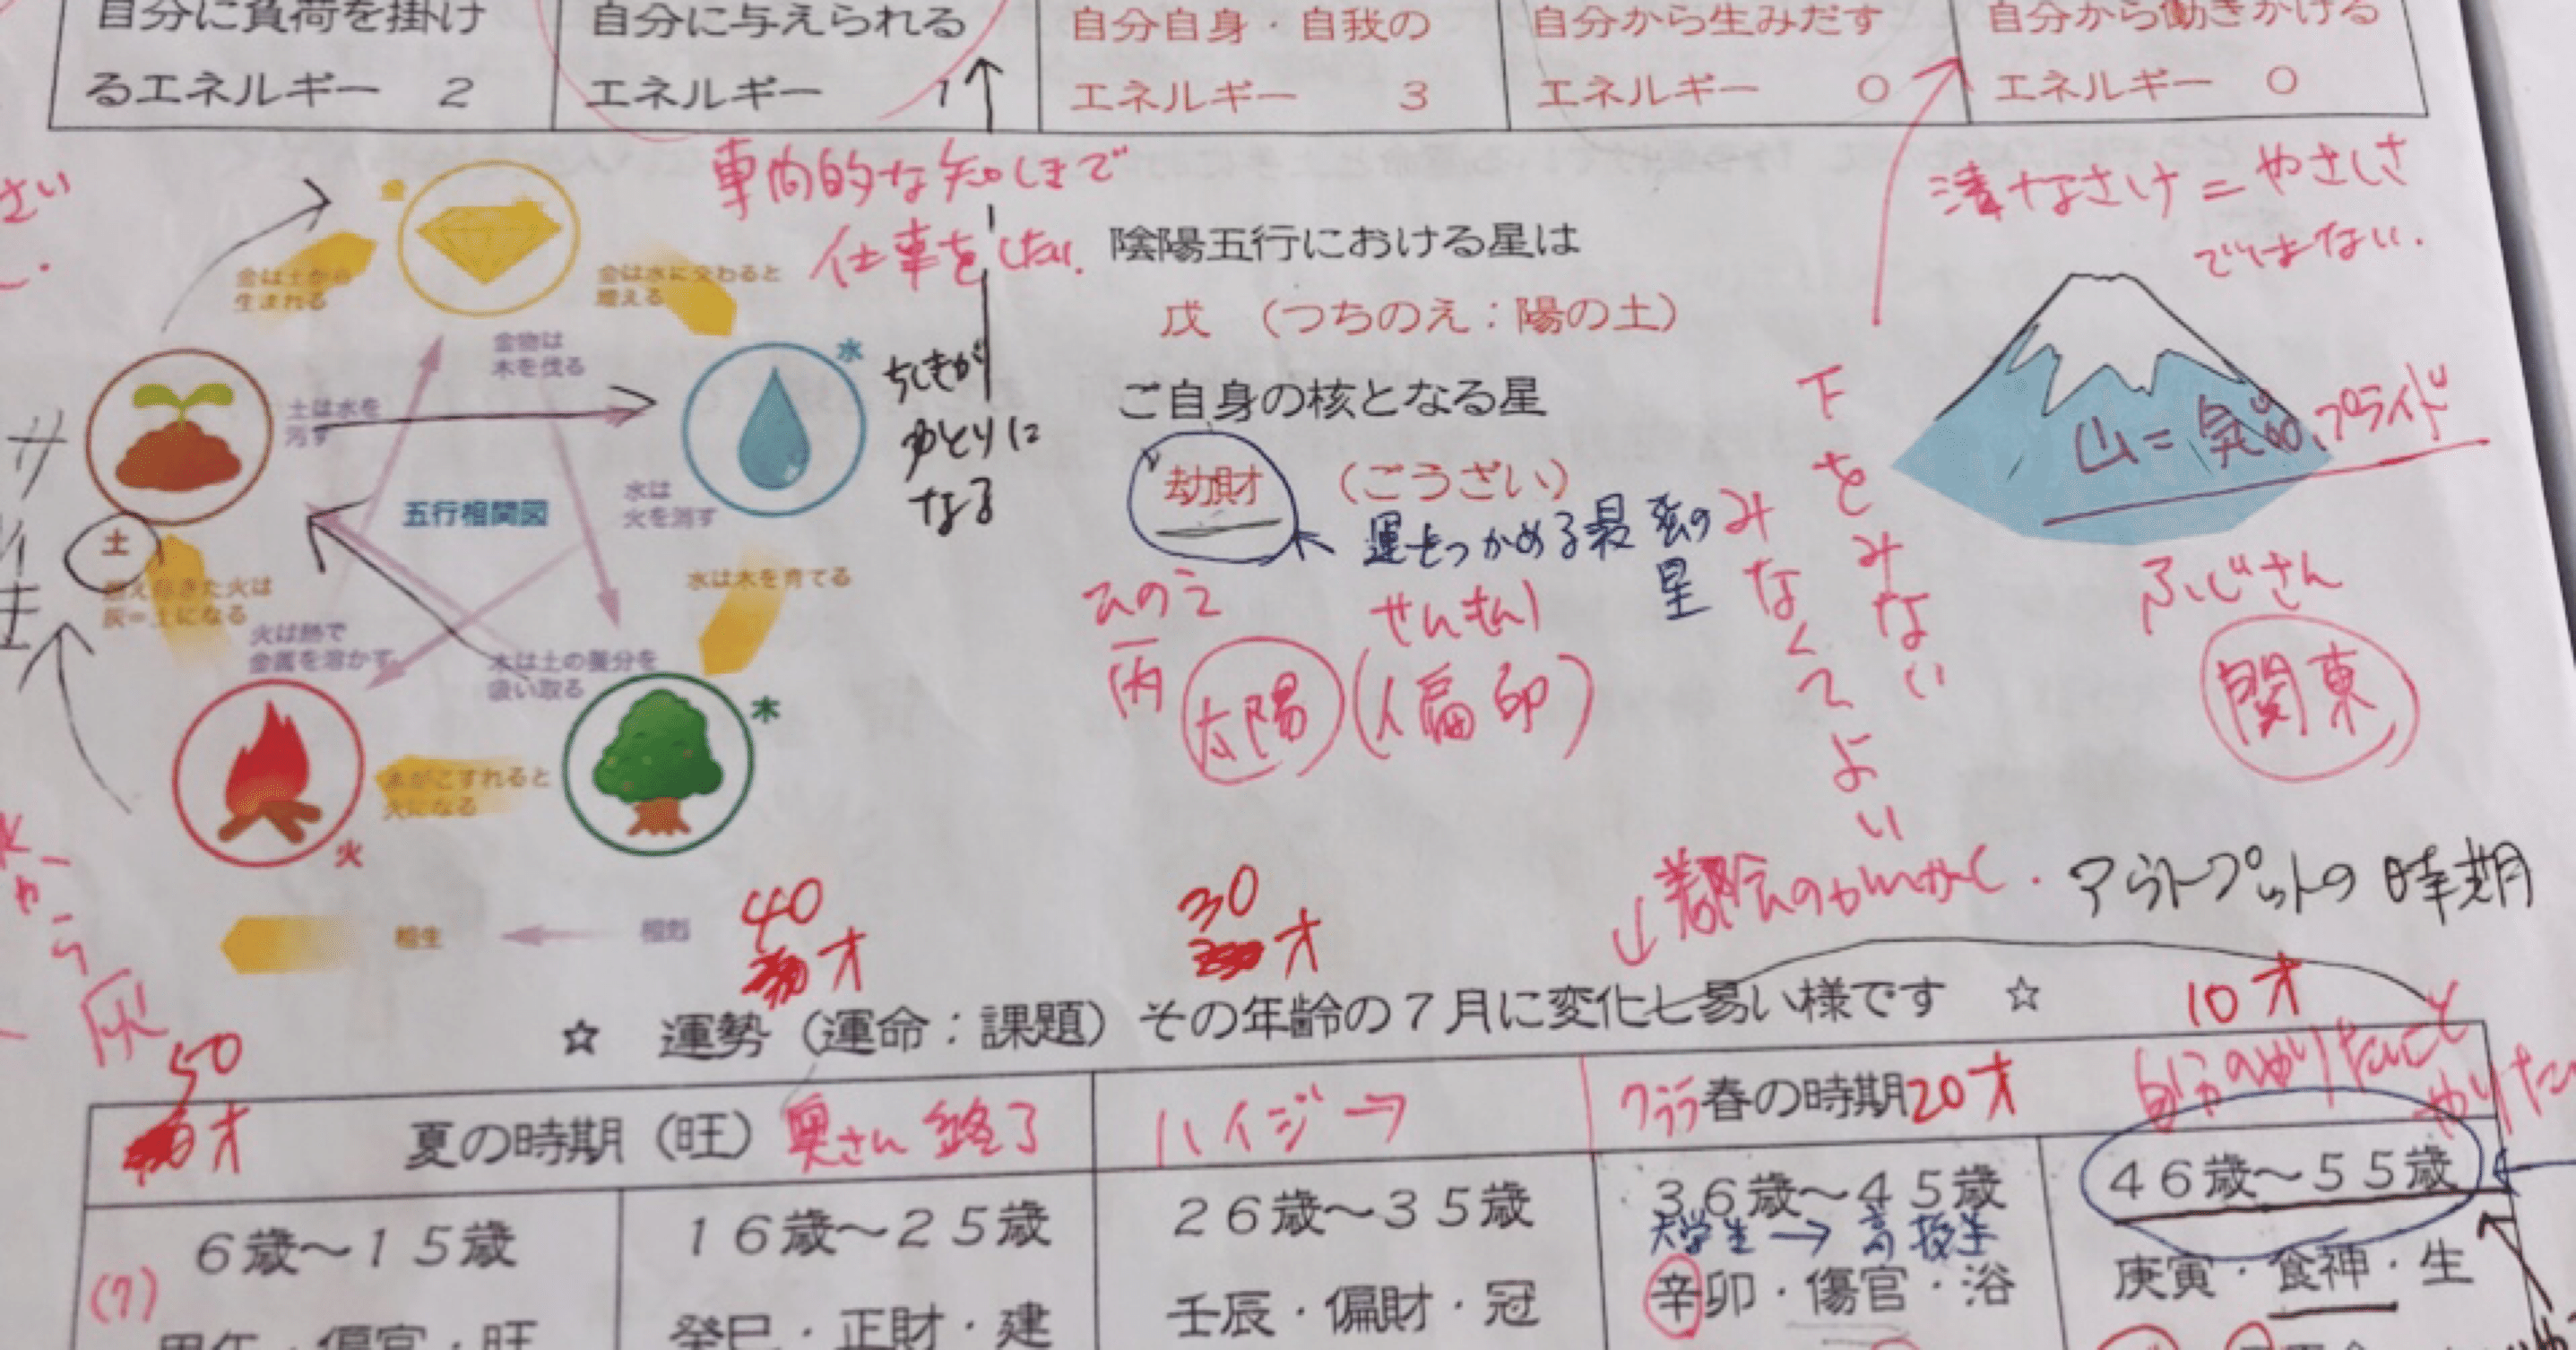 自分に負荷を掛け
るエネルギー 2
自分に与えられる
エネルギー 1
自分自身・自我の
エネルギー 3
自分から生みだす
エネルギー 0
自分から働きかける
エネルギー 0
さい
な知しきで
仕事をしたい.
なさけ=やさしさ
ではない.
金は土から
生まれる
金は水に交わると
増える
金物は
木を伐る
土は水を
汚す
水
水は
火を消す
五行相関図
土
燃え尽きた火は
灰=土になる
水は木を育てる
火は熱で
金属を溶かす
木は土の養分を
吸い取る
木
木がこすれると
火になる
火
相生
相剋
ちしきが
ゆとりに
なる
陰陽五行における星は
戊 (つちのえ:陽の土)
ご自身の核となる星
劫財 (ごうざい)
運をつかめる最強の
星
ひのえ
丙 太陽 (偏印)
下をみない
みなくてよい
山=気品、プライド
ふじさん
関東
から
灰
アウトプットの時期
50才
40才
30才
10才
☆ 運勢(運命:課題)その年齢の7月に変化し易い様です ☆
夏の時期(旺) 奥さん 終了
ハイジ→
クララ 春の時期 20才
自分のやりたいこと
やりた
6歳~15歳
16歳~25歳
26歳~35歳
36歳~45歳
大学生→高校生
46歳~55歳
(7)
甲午・偏官・旺
癸巳・正財・建
壬辰・偏財・冠
辛卯・傷官・浴
庚寅・食神・生